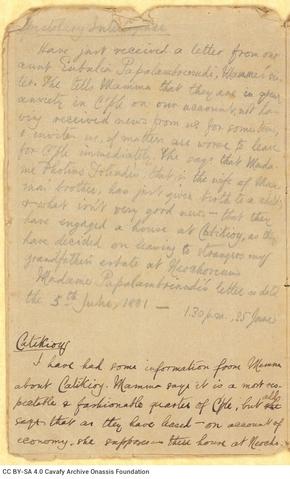 Have just received a letter from our
aunt Eubalia Papalambrinoudi, Mamma's sis-
ter. She tells Mamma that they are in great
anxiety in C/ple on our account, not ha-
ving received news from us for sometime,
& invites us, if matters are worse to leave
for C/ple immediately. She says that Mada-
me that is the wife of Mam-
ma's brother, has just given birth to a child,
& what isn't very good news — that they
have engaged a house at Catikioy, as they
have decided on leasing to strangers my
grandfather's estate at Neochorion.
Madame Papalambrinoudi's letter is dated
the 5th June, 1881 — 1.30 p.m., 25 June
Catikioy
I have had some information from Mamma
about Catikioy. Mamma says it is a most res-
pectable & fashionable quarter of C/ple, but she
says that as they have leased — on account of
economy, she supposes — their house at Neocho-
CC BY-SA 4.0 Cavafy Archive Onassis Foundation